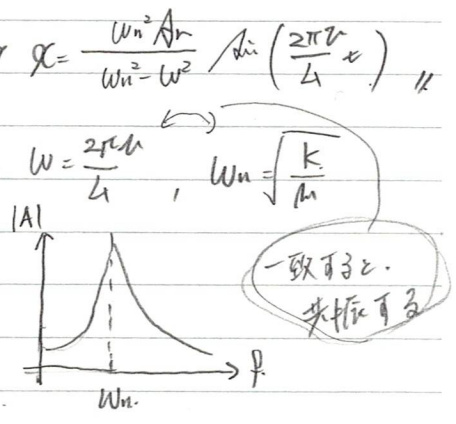 x = \frac{ω_n^2 A_r}{ω_n^2 - ω^2} sin(\frac{2πv}{L} t) //
ω = \frac{2πv}{L} , ω_n = \sqrt{\frac{k}{m}}
一致すると.
共振する
|A|
f.
ω_n.